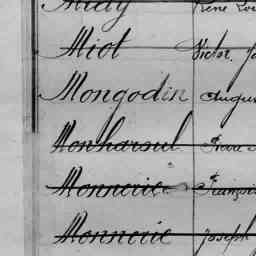 Miot Victor
Mongodin Augus
Monharoul Pierre
Monnerie François
Monnerie Joseph